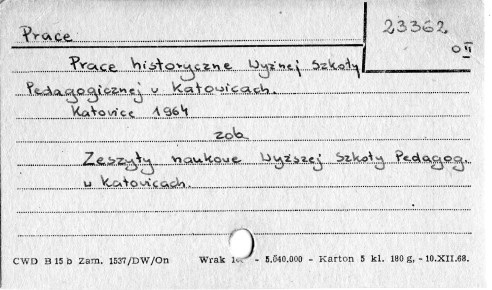 Prace
23362
O II
Prace historyczne Wyżnej Szkoły
Pedagogicznej w Katowicach.
Katowice 1964
zob
Zeszyty naukowe Wyższej Szkoły Pedagog.
w Katowicach.
CWD B 15 b Zam. 1537/DW/On Wrak - 5.040.000 - Karton 5 kl. 180 g, - 10.XII.68.